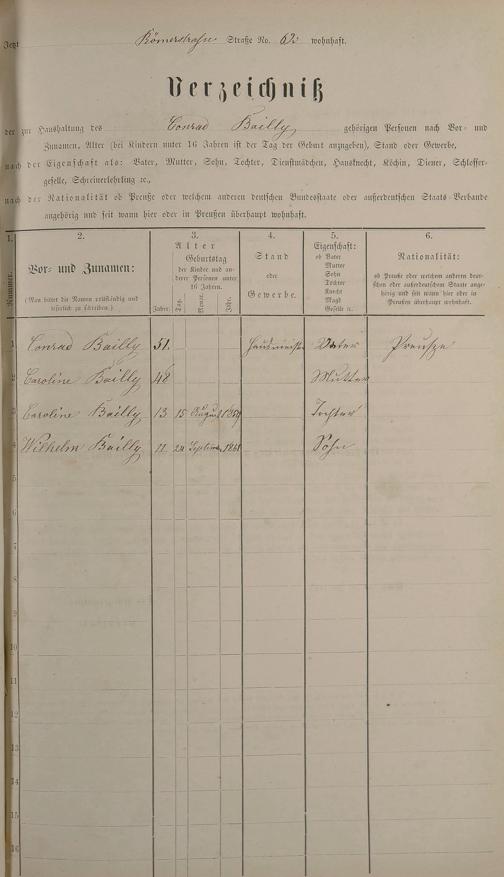 Jetzt Römerstraße Straße No. wohnhaft.
Verzeichniß
der zur Haushaltung des Conrad Bailly gehörigen Personen nach Vor- und
Zunamen, Alter (bei Kindern unter 16 Jahren ist der Tag der Geburt anzugeben), Stand oder Gewerbe,
nach der Eigenschaft als: Vater, Mutter, Sohn, Tochter, Dienstmädchen, Hausknecht, Köchin, Diener, Schlosser-
geselle, Schreinerlehrling ꝛc.,
nach der Nationalität ob Preuße oder welchem anderen deutschen Bundesstaate oder außerdeutschen Staats-Verbande
angehörig und seit wann hier oder in Preußen überhaupt wohnhaft.
1. 2. 3. 4. 5. 6.
Nummer.
Vor- und Zunamen:
(Man bittet die Namen vollständig und
leserlich zu schreiben.)
Alter
Geburtstag
der Kinder und an-
derer Personen unter
16 Jahren.
Jahre. Tag. Monat. Jahr.
Stand
oder
Gewerbe.
Eigenschaft:
ob Vater
Mutter
Sohn
Tochter
Knecht
Magd
Geselle ꝛc.
Nationalität:
ob Preuße oder welchem anderen deut-
schen oder außerdeutschen Staate ange-
hörig und seit wann hier oder in
Preußen überhaupt wohnhaft.
1 Conrad Bailly 51. Hausmeister Vater Preusze
2 Caroline Bailly 48 Mutter
3 Caroline Bailly 13 15 August 1859 Tochter
4 Wilhelm Bailly 11 24 September 1861 Sohn
5
6
7
8
9
10
11
12
13
14
15
16